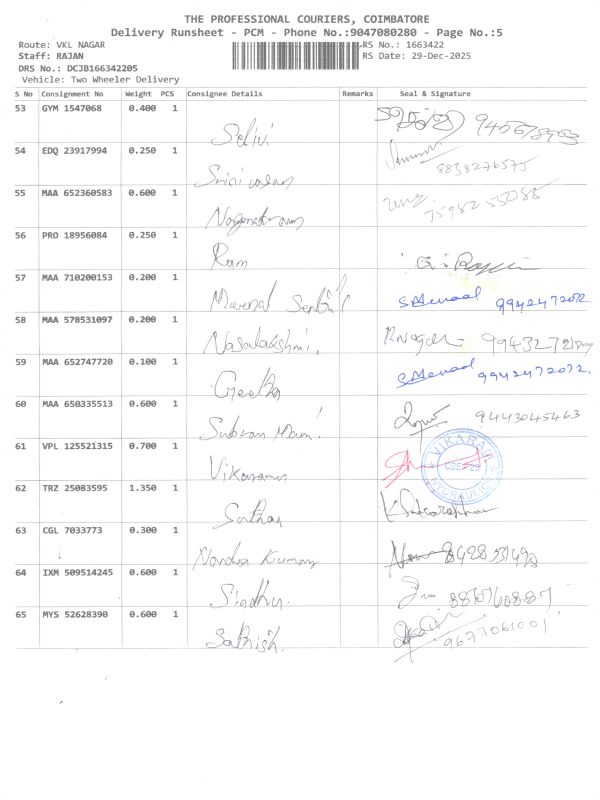 THE PROFESSIONAL COURIERS, COIMBATORE
Delivery Runsheet - PCM - Phone No.:9047080280 - Page No.:5
Route: VKL NAGAR RS No.: 1663422
Staff: RAJAN RS Date: 29-Dec-2025
DRS No.: DCJB166342205
Vehicle: Two Wheeler Delivery
S No Consignment No Weight PCS Consignee Details Remarks Seal & Signature
53 GYM 1547068 0.400 1
Selvi
54 EDQ 23917994 0.250 1
Srinivasan 8838276575
55 MAA 652360583 0.600 1
56 PRO 18956084 0.250 1
Ram
57 MAA 710200153 0.200 1
Senthil 9942472072
58 MAA 578531097 0.200 1
59 MAA 652747720 0.100 1
Geetha 9942472072
60 MAA 650335513 0.600 1
9443045463
61 VPL 125521315 0.700 1
VIKARAM
HYDRAULICS
62 TRZ 25083595 1.350 1
63 CGL 7033773 0.300 1
Nandha Kumar
64 IXM 509514245 0.600 1
Sindhu.
65 MYS 52628390 0.600 1
Sathish. 9677061001